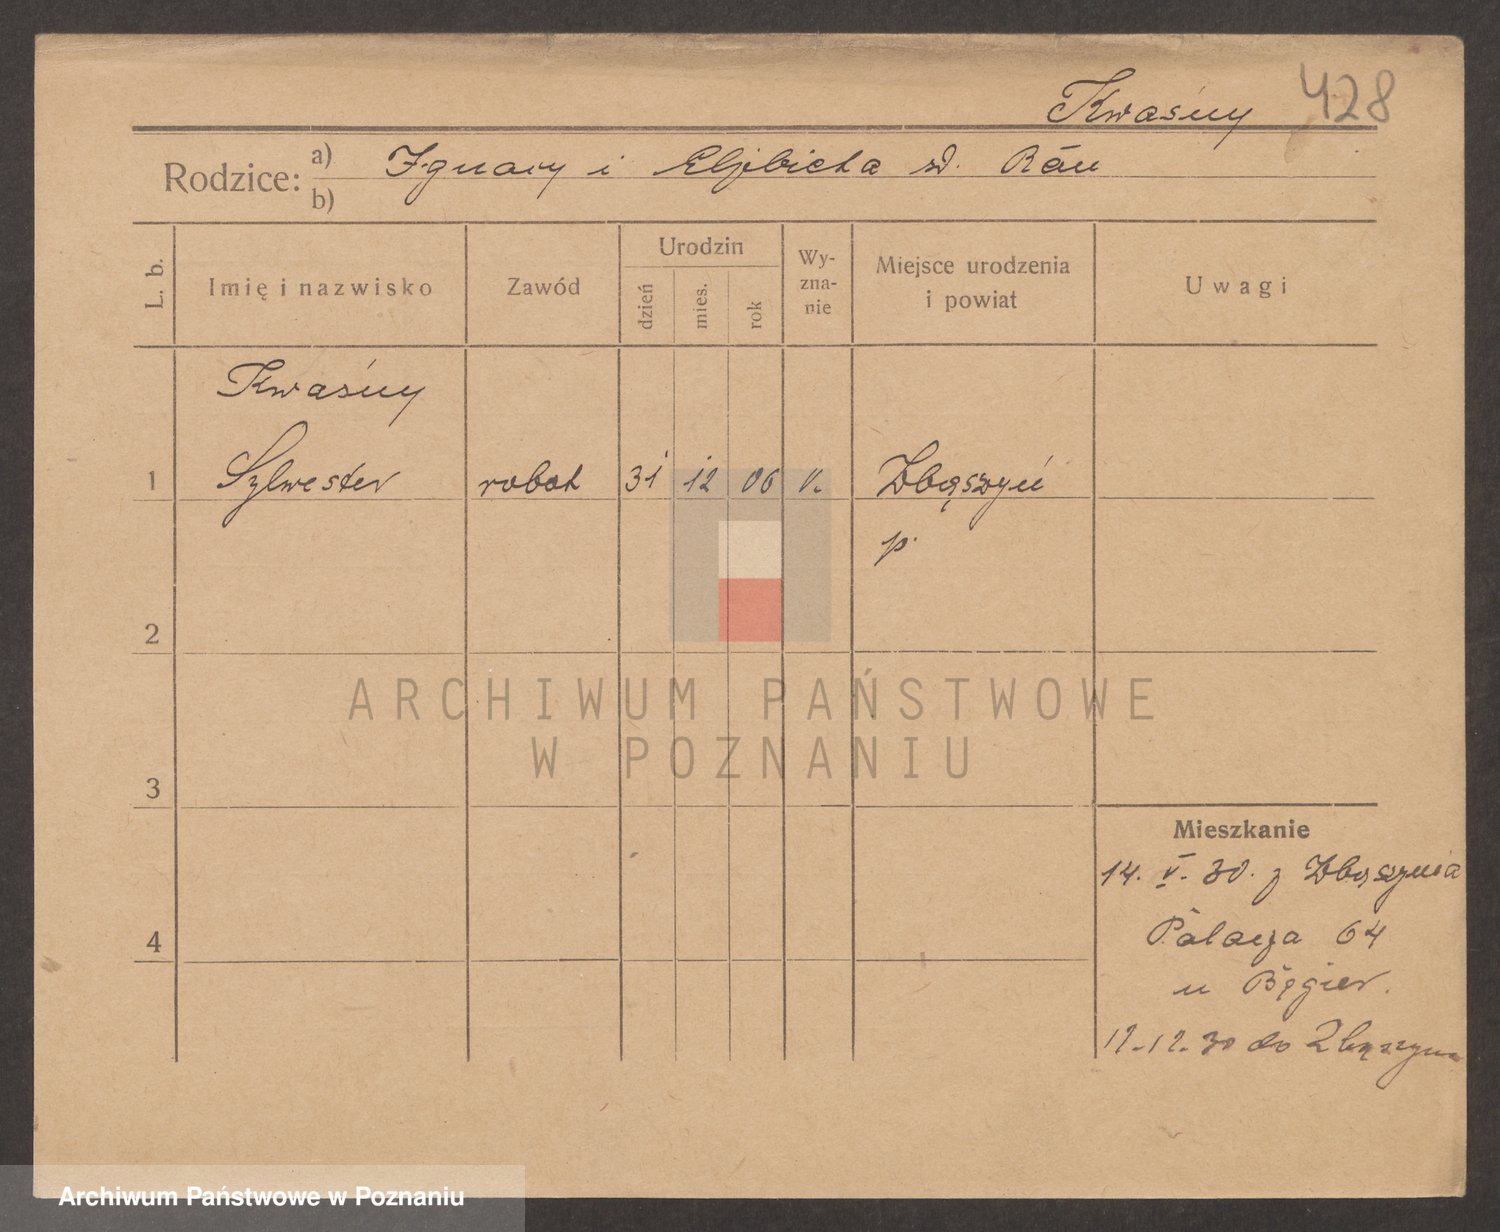 Kwaśny 428
Rodzice: a) Ignacy i Elżbieta zd. Rau
b)
L. b.
Imię i nazwisko
Zawód
Urodzin
dzień
mies.
rok
Wy-
zna-
nie
Miejsce urodzenia
i powiat
Uwagi
Kwaśny
1 Sylwester robot 31 12 06 r. Zbąszyń
p.
2
3
4
Mieszkanie
14. V. 30. z Zbąszynia
Palacza 64
u Bęgier.
12.12.30 do Zbąszynia
ARCHIWUM PAŃSTWOWE
W POZNANIU
Archiwum Państwowe w Poznaniu